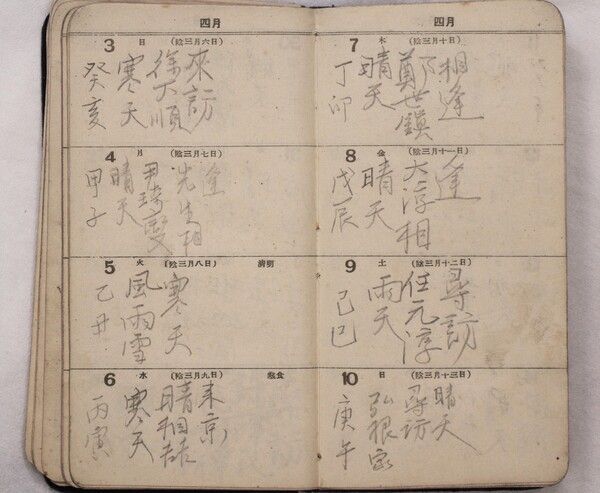 四月
3 日 (陰三月六日)
癸亥
寒天
徐 順
來訪
4 月 (陰三月七日)
甲子
晴天
尹
先生相
逢
5 火 (陰三月八日) 清明
乙丑
風雨雪
寒天
6 水 (陰三月九日) 寒食
丙寅
寒天
來京
四月
7 木 (陰三月十日)
丁卯
晴天
鄭世鎮
相逢
8 金 (陰三月十一日)
戊辰
晴天
大淳相
逢
9 土 (陰三月十二日)
己巳
雨天
任元淳
尋訪
10 日 (陰三月十三日)
庚午
弘根家
尋訪
晴天